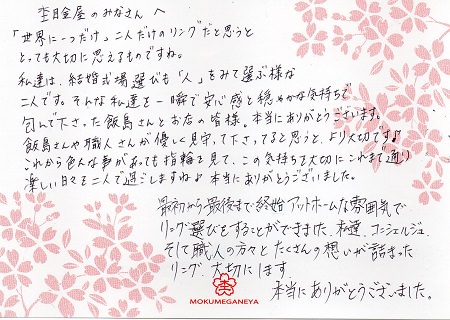 杢目金屋のみなさんへ
「世界に一つだけ」二人だけのリングだと思うと
とっても大切に思えるものですね。
私達は、結婚式場選びも「人」をみて選ぶ様な
二人です。そんな私達を一瞬で安心感と穏やかな気持ちで
包んで下さった飯島さんとお店の皆様。本当にありがとうございます。
飯島さんや職人さんが優しく見守って下さってると思うと、より大切です♪
これから色んな事があっても指輪を見て、この気持ちを大切にこれまで通り
楽しい日々を二人で過ごしますね♪ 本当にありがとうございました。
最初から最後まで終始アットホームな雰囲気で
リング選びをすることができました。私達、コンシェルジュ、
そして職人の方々とたくさんの想いが詰まった
リング、大切にします。
本当にありがとうございました。
MOKUMEGANEYA